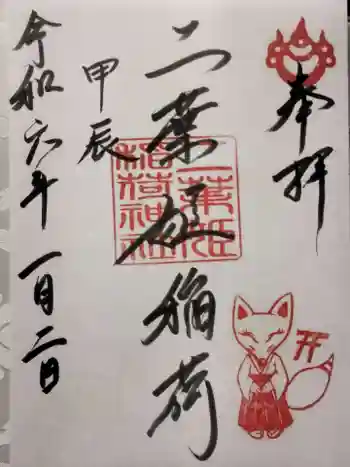 奉拝
二葉姫稲荷
二葉姫
稲荷神社
甲辰
令和六年一月二日